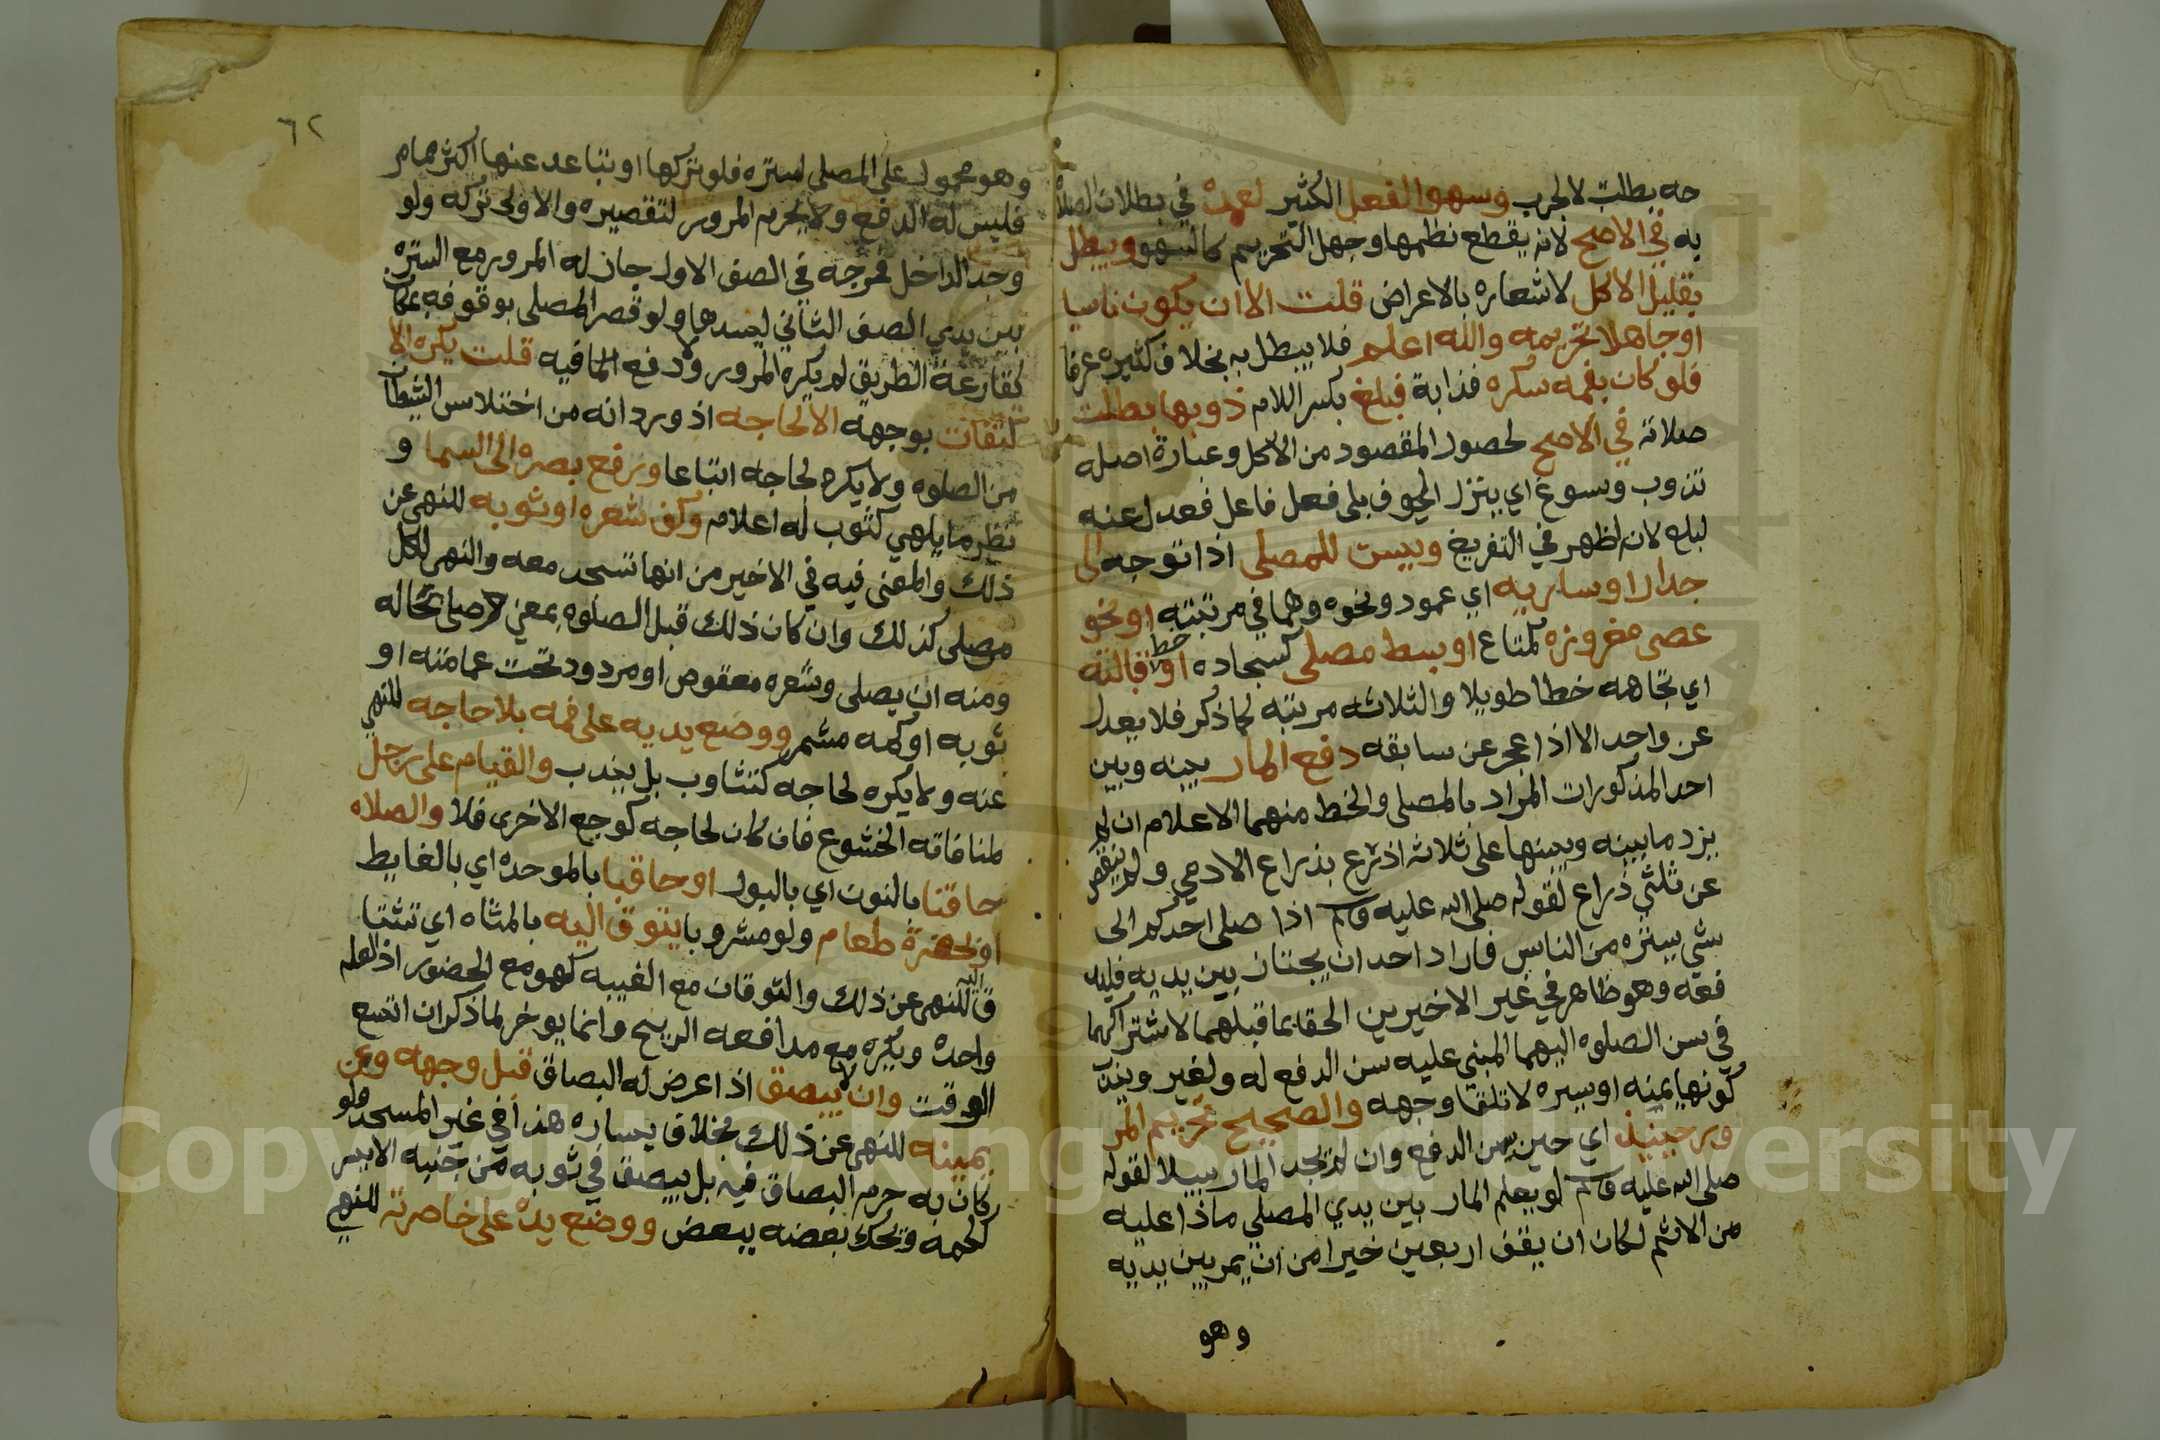 حه بطلت لا لجرب وسهو الفعل الكثير كعمده في بطلان الصلاة
به في الاصح لانه يقطع نظمها وجهل التحريم كالسهو ويبطل
بقليل الاكل لاشعاره بالاعراض قلت الا ان يكون ناسيا
او جاهلا تحريمه والله اعلم فلا يبطل به بخلاف كثيره عرفا
فلو كان بفمه سكره فذابة فبلع بكسر اللام ذوبها بطلت
صلاته في الاصح لحصول المقصود من الاكل وعبارة اصله
تذوب وبسوغ اي ينزل الجوف بلى فعل فاعل فعدل عنه
لبلع لانه اظهر في التفريع ويسن للمصلي اذا توجه الى
جدار او ساريه اي عمود ونحوه وهما في مرتبته او نحو
عصى مغروزه كمتاع او بسط مصلى كسجاده او خط قبالته
اي تجاهه خطا طويلا والثلاثه مرتبته لما ذكر فلا يعدل
عن واحد الا اذا عجز عن سابقه دفع المار بينه وبين
احد المذكورات المراد بالمصلى والخط منهما الاعلام ان لم
يزد ما بينه وبينها على ثلاثه اذرع بذراع الادمي ولم ينقص
عن ثلثي ذراع لقوله صلى الله عليه وسلم اذا صلى احدكم الى
شي يستره من الناس فاراد احد ان يجتاز بين يديه فليد
فعه وهو ظاهر في غير الاخيرين الحقا بما قبلهما لاشتراكهما
في سن الصلوه اليهما المبني عليه سن الدفع له ولغير ويندب
كونها يمينه او يسره لا تلقا وجهه والصحيح تحريم المر
ور حينيذ اي حين يسن الدفع وان لم يجد المار سبيلا لقوله
صلى الله عليه وسلم لو يعلم المار بين يدي المصلي ماذا عليه
من الاثم لكان ان يقف اربعين خيرا من ان يمر بين يديه
وهو
٦٢
وهو محمول على المصلي لستره فلو تركها او تباعد عنها اكثر مما مر
فليس له الدفع ولا يحرم المرور لتقصيره والاولى تركه ولو
وجد الداخل فرجه في الصف الاول جاز له المرور مع الستره
بين يدي الصف الثاني ليسدها ولو قصر المصلي بوقوفه بمكان
كقارعة الطريق لم يكره المرور ولا دفع المار فيه قلت يكره الا
لتفات بوجهه الا لحاجه اذ ورد انه من اختلاس الشيطان
من الصلوه ولا يكره لحاجه اتباعا ورفع بصره الى السما و
نظر ما يلهي كثوب له اعلام وكف شعره او ثوبه للنهي عن
ذلك والمعنى فيه في الاخير من انها تسجد معه والنهي لكل
مصلي كذلك وان كان ذلك قبل الصلوه بمعني وصلى بحاله
ومنه ان يصلي وشعره معقوص او مردود تحت عمامته او
ثوبه او كمه مشمر ووضع يديه على فمه بلا حاجه للنهي
عنه ولا يكره لحاجه كتثاوب بل يندب والقيام على رجل
لمنافاته الخشوع فان كان لحاجه كوجع الاخرى فلا والصلاه
حاقنا بالنون اي بالبول او حاقبا بالموحده اي بالغايط
او بحضرة طعام ولو مشروبا يتوق اليه بالمثناه اي تشتا
ق اليه للنهي عن ذلك والتوقان مع الغيبه كهو مع الحضور اذ العله
واحده ويكره مع مدافعه الريح وانما يوخر لما ذكر ان اتسع
الوقت وان يبصق اذا عرض له البصاق قبل وجهه وعن
يمينه للنهي عن ذلك بخلاف يساره هذا في غير المسجد فلو
كان به حرم البصاق فيه بل يبصق في ثوبه من جنبه الايسر
ككمه ويحك بعضه ببعض ووضع يده على خاصرته للنهي
Copyright © King Saud University